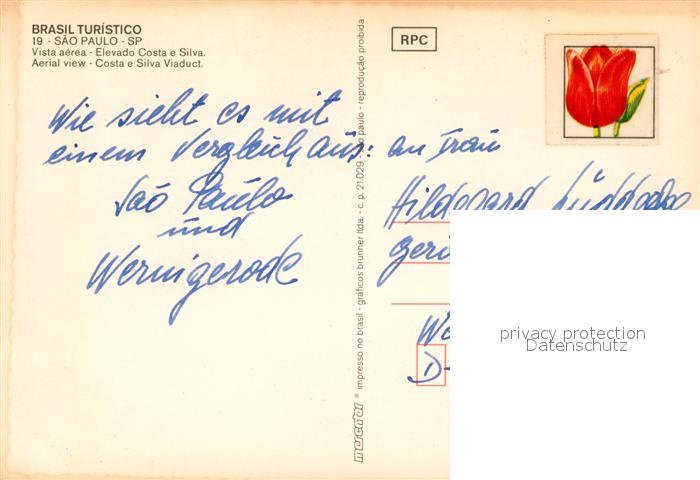 BRASIL TURÍSTICO
19 - SÃO PAULO - SP
Vista aérea - Elevado Costa e Silva.
Aerial view - Costa e Silva Viaduct.
Wie sieht es mit
einem Vergleich aus:
Saō Paulo
und
Wernigerode
mercator ® impresso no brasil - gráficos brunner ltda. - c. p. 21.029 - são paulo - reprodução proibida
RPC
an Frau
Hildegard
D-
privacy protection
Datenschutz